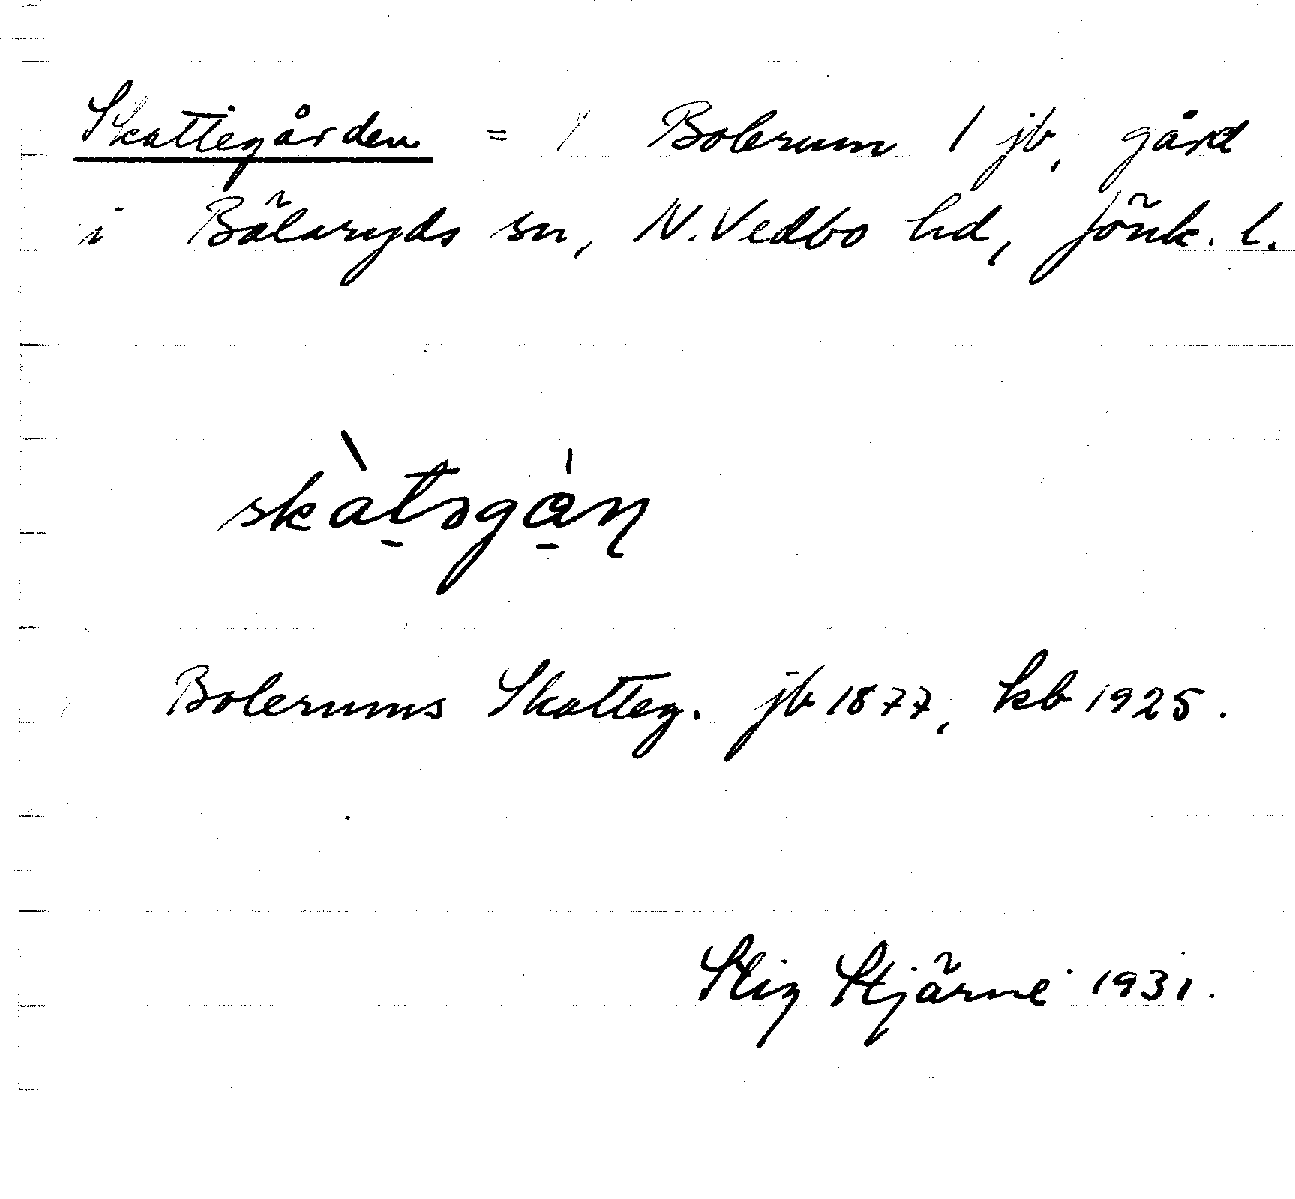 Skattegården = / Bolerum 1 jb, gård
i Bälaryds sn, N. Vedbo hd, Jönk. l.
skàtəgȧ̀n
Bolerums Skatteg. jb 1877, kb 1925.
Stig Stjärne 1931.